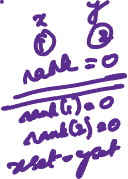 x y
1 2
rank = 0
rank(1) = 0
rank(2) = 0
xset - yset